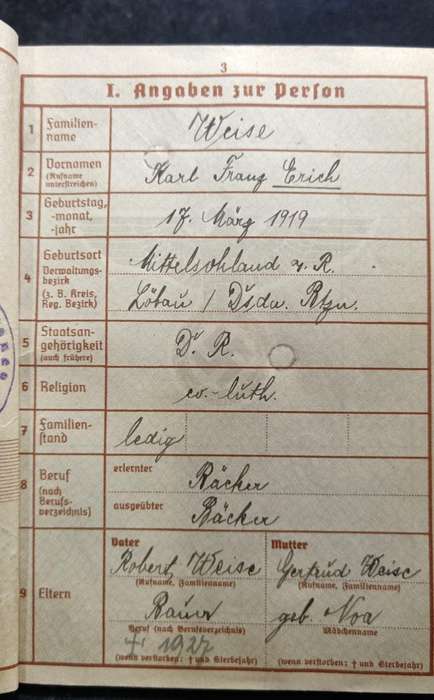 3
I. Angaben zur Person
1 Familien-
name
Weise
2 Vornamen
(Rufname
unterstreichen)
Karl Franz Erich
3 Geburtstag,
-monat,
-jahr
17. März 1919
4 Geburtsort
Verwaltungs-
bezirk
(z. B. Kreis,
Reg. Bezirk)
Mittelsohland a. R.
Löbau / Dr̈sdn. Btzn.
5 Staatsan-
gehörigkeit
(auch frühere)
D. R.
6 Religion
ev.-luth.
7 Familien-
stand
ledig
8 Beruf
(nach
Berufs-
verzeichnis)
erlernter
Bäcker
ausgeübter
Bäcker
9 Eltern
Vater
Robert Weise
(Rufname, Familienname)
Bauer
Beruf (nach Berufsverzeichnis)
† 1927
(wenn verstorben: † und Sterbejahr)
Mutter
Gertrud Weise
(Rufname, Familienname)
geb. Noa
Mädchenname
(wenn verstorben: † und Sterbejahr)